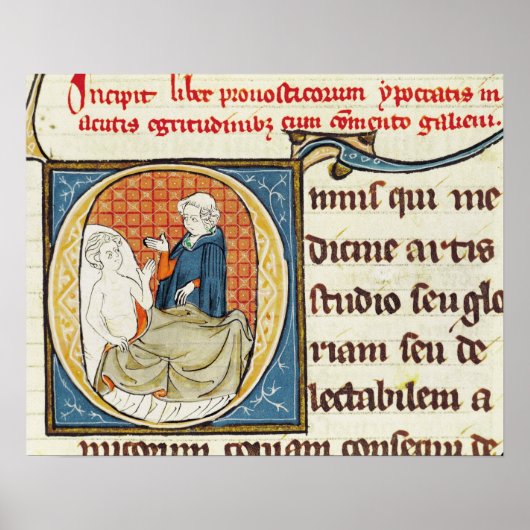 Incipit liber pronosticorum ypocratis in
acutis egritudinibz cum comento galieni.
Omnis qui me
dicine artis
studio seu glo
riam seu de
lectabilem a
micorum copiam consequi de